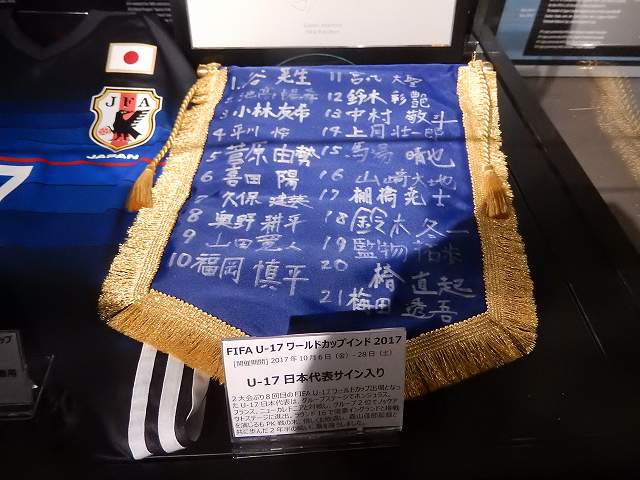 JFA
JAPAN
7
1. 谷 晃生
2 池髙暢希
3 小林友希
4 平川 怜
5 菅原由勢
6 喜田 陽
7 久保 建英
8 奥野耕平
9 山田寛人
10 福岡 慎平
11 宮代 大聖
12 鈴木 彩艶
13 中村 敬斗
14 上月 壮一郎
15 馬場 晴也
16 山﨑大地
17 棚橋尭士
18 鈴木冬一
19 監物拓歩
20 椿 直起
21 梅田 透吾
FIFA U-17 ワールドカップインド 2017
[開催期間] 2017年10月6日（金）- 28日（土）
U-17 日本代表サイン入り
2大会ぶり8回目のFIFA U-17ワールドカップ出場となっ
たU-17日本代表は、グループステージでホンジュラス、
フランス、ニューカレドニアと対戦し、グループ2位でノックア
ウトステージに進出。ラウンド16で強豪イングランドと接戦
を演じるもPK戦の末、惜しくも敗退し、森山佳郎監督と
共に歩んだ2年半の